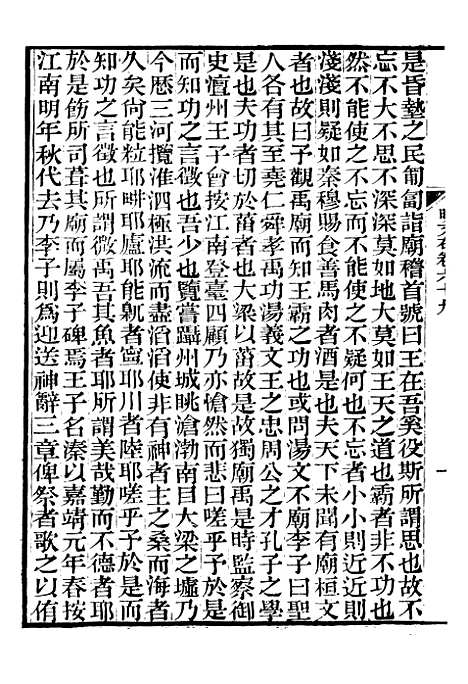 是昏墊之民匍匐詣廟稽首號曰王在吾奚役斯所謂思也故不
忘不大不思不深深莫如地大莫如天王之道也霸者非不功也
然不能使之不忘而不能使之不疑何也不忘者小小則近近則
淺淺則疑如秦穆賜食善馬肉者酒是也夫天下未聞有廟桓文
者也故曰予觀禹廟而知王霸之功也或問湯文不廟李子曰聖
人各有其至堯仁舜孝禹功湯義文王之忠周公之才孔子之學
是也夫功者切於菑者也大梁以菑故是故獨廟禹是時監察御
史澶州王子會按江南登臺四顧乃亦愴然而悲曰嗟乎予於是
而知功之言徵也吾少也覽嘗躡州城眺滄渤南目大梁之墟乃
今歷三河攬淮泗極洪流而盡滔滔使非有神者主之桑而海者
久矣尙能粒耶畊耶廬耶能䡖者宣耶川者陸耶嗟乎予於是而
知功之言徵也所謂微禹吾其魚者耶所謂美哉勤而不德者耶
於是飭所司葺其廟而屬李子碑焉王子名溱以嘉靖元年春按
江南明年秋代去乃李子則爲迎送神辭三章俾祭者歌之以侑